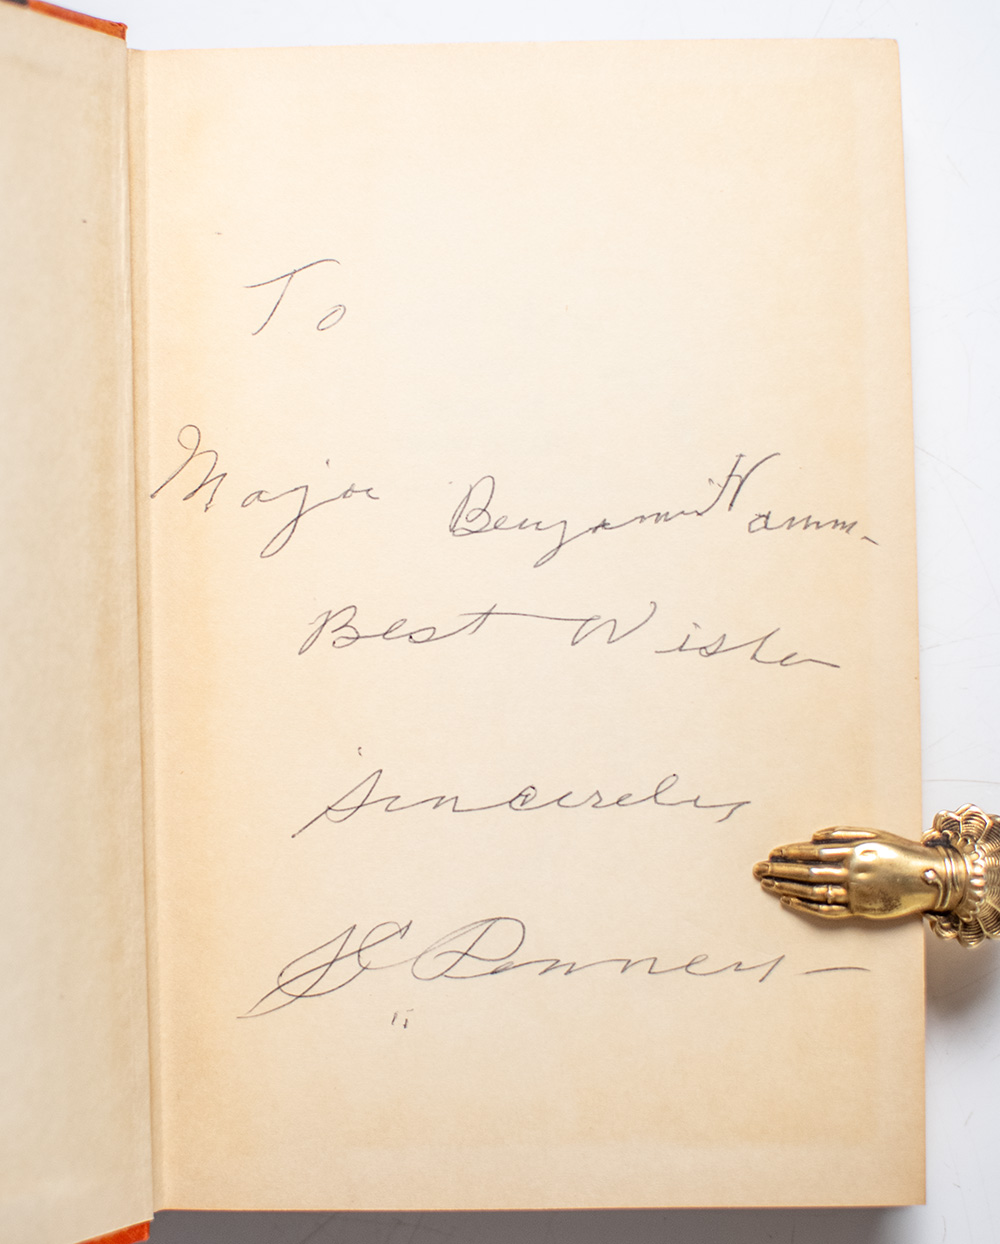 To
Major Benjamin Hamm
Best Wishes
Sincerely
J C Penney